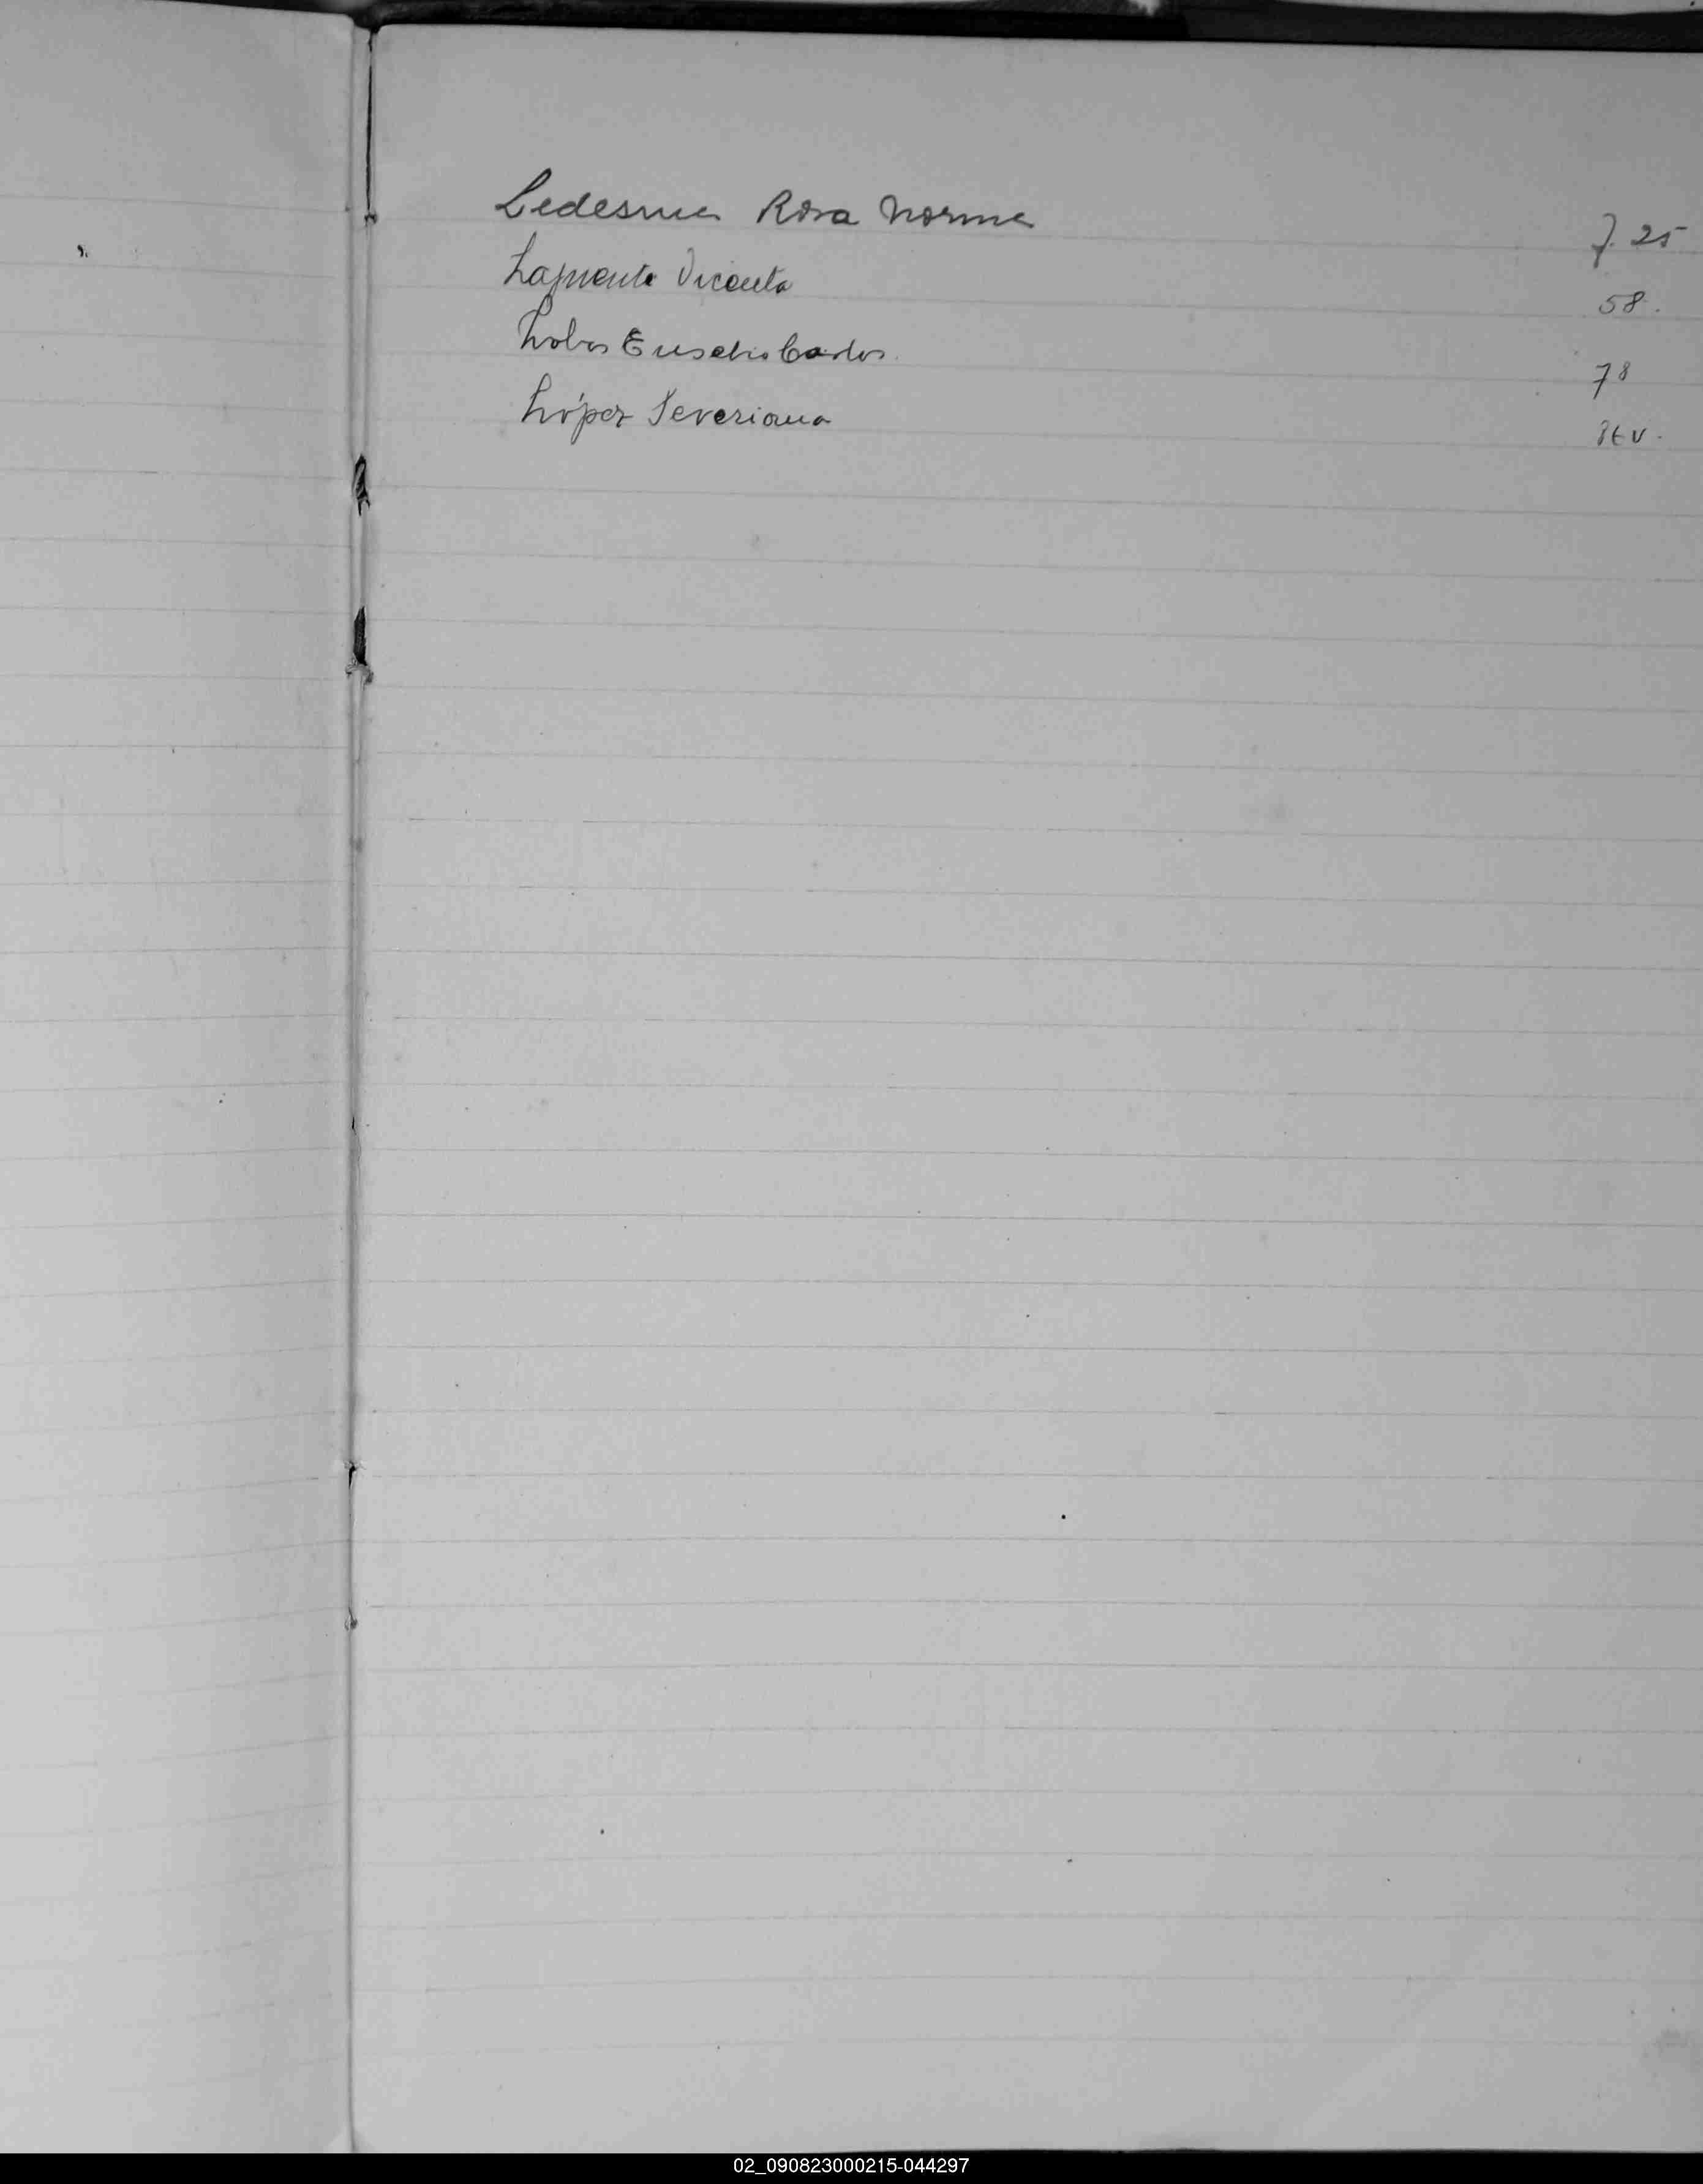 Ledesma Rosa Norma f. 25
Lapuente Vicenta 58.
Lobos Eusebio Carlos. 78
López Severiana
02_090823000215-044297